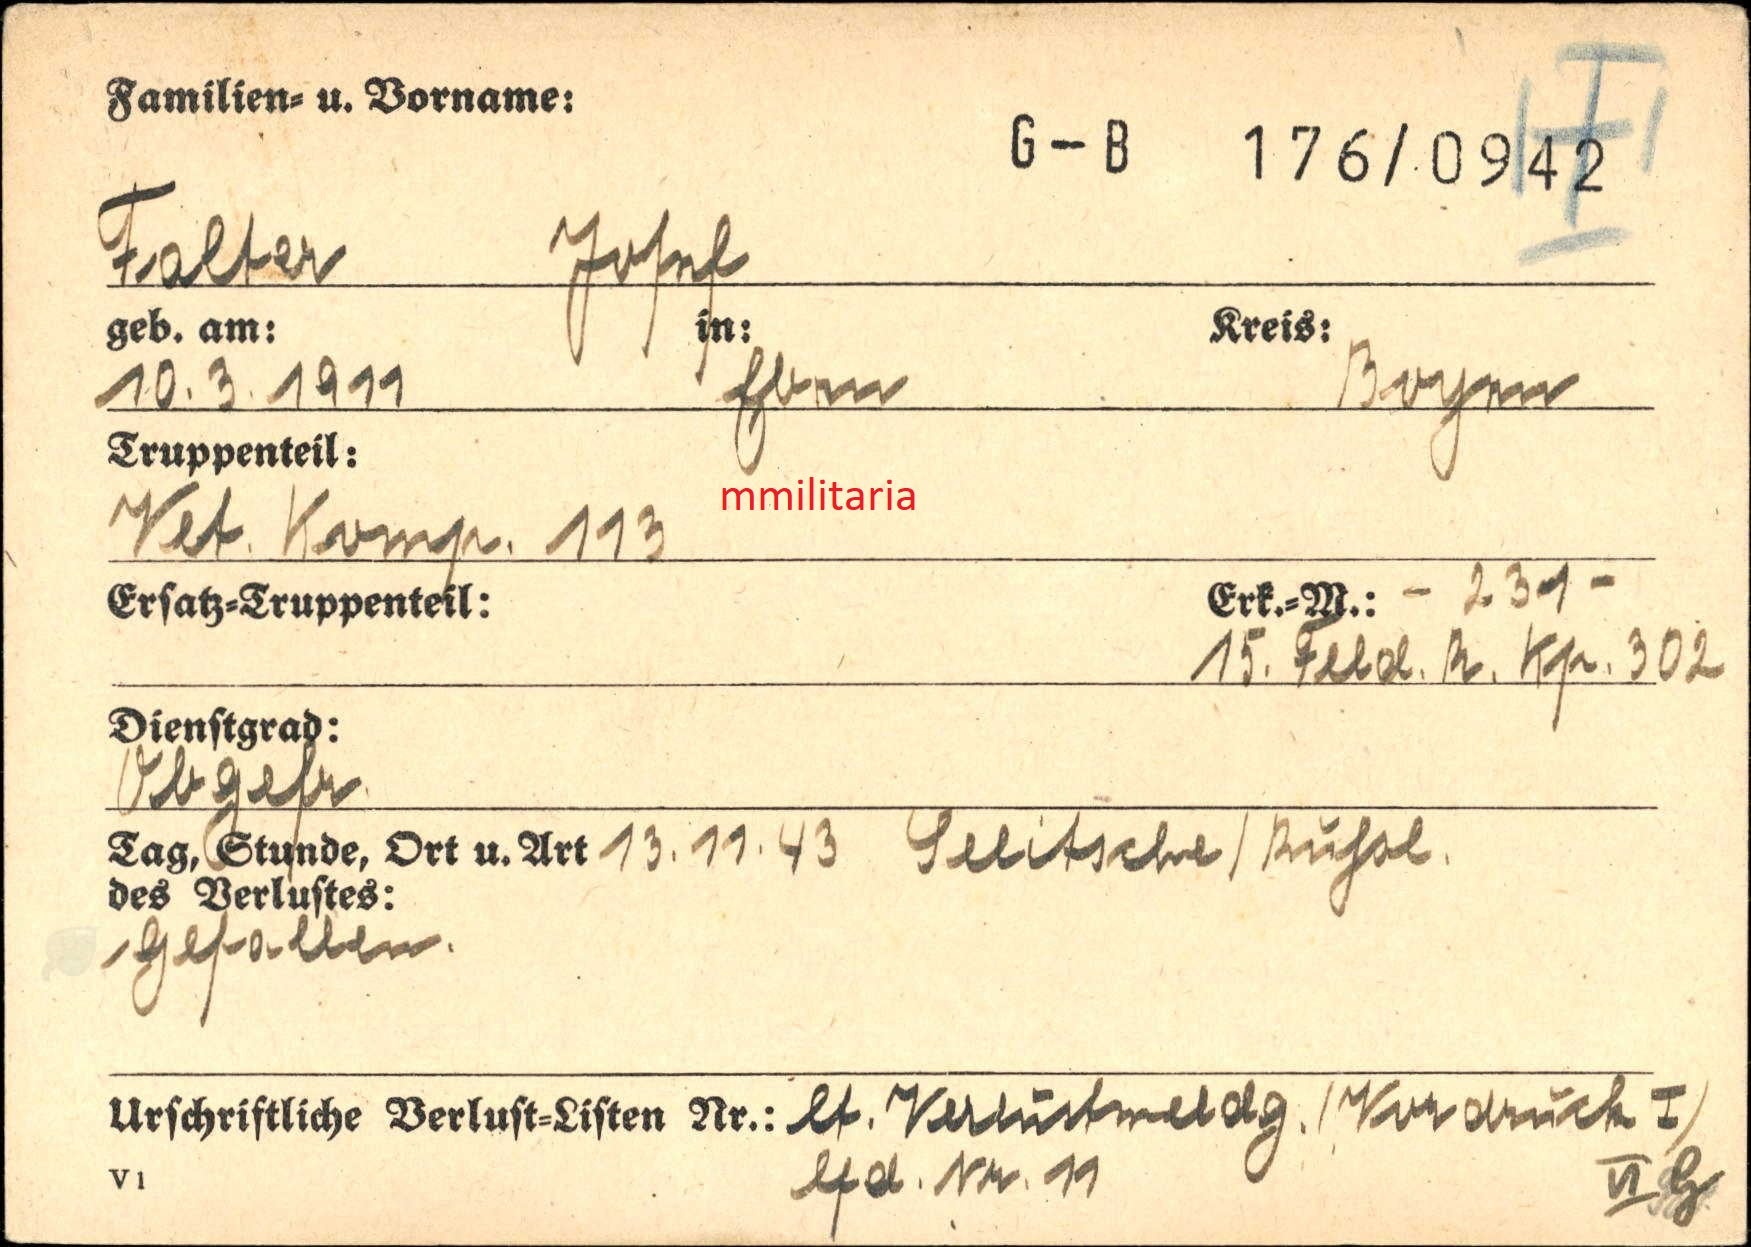 Familien- u. Vorname:
G-B 176/0942
I
Falter Josef
geb. am: in: Kreis:
10.3.1911 Ebern Bayern
Truppenteil:
mmilitaria
Vet. Komp. 113
Ersatz-Truppenteil: Erk.-M.: - 231 -
15. Feld. R. Kp. 302
Dienstgrad:
Obgefr.
Tag, Stunde, Ort u. Art 13.11.43 Selitsche / Rußl.
des Verlustes:
gefallen.
Urschriftliche Verlust-Listen Nr.: lt. Verlustmeldg. (Vordruck I)
V1 lfd. Nr. 11 VI